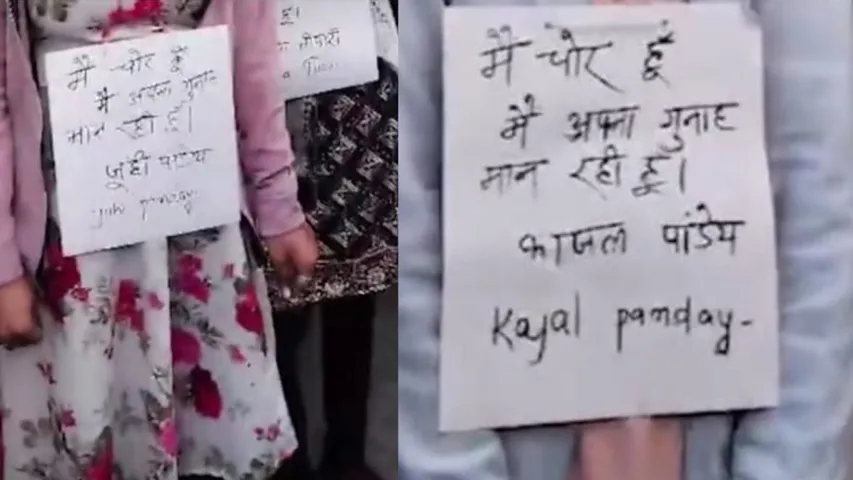 मै चोर हूँ
मै अपना गुनाह
मान रही हूँ।
जूही पांडेय
हूँ।
मै चोर हूँ
मै अपना गुनाह
मान रही हूँ।
काजल पांडेय
Kajal panday-